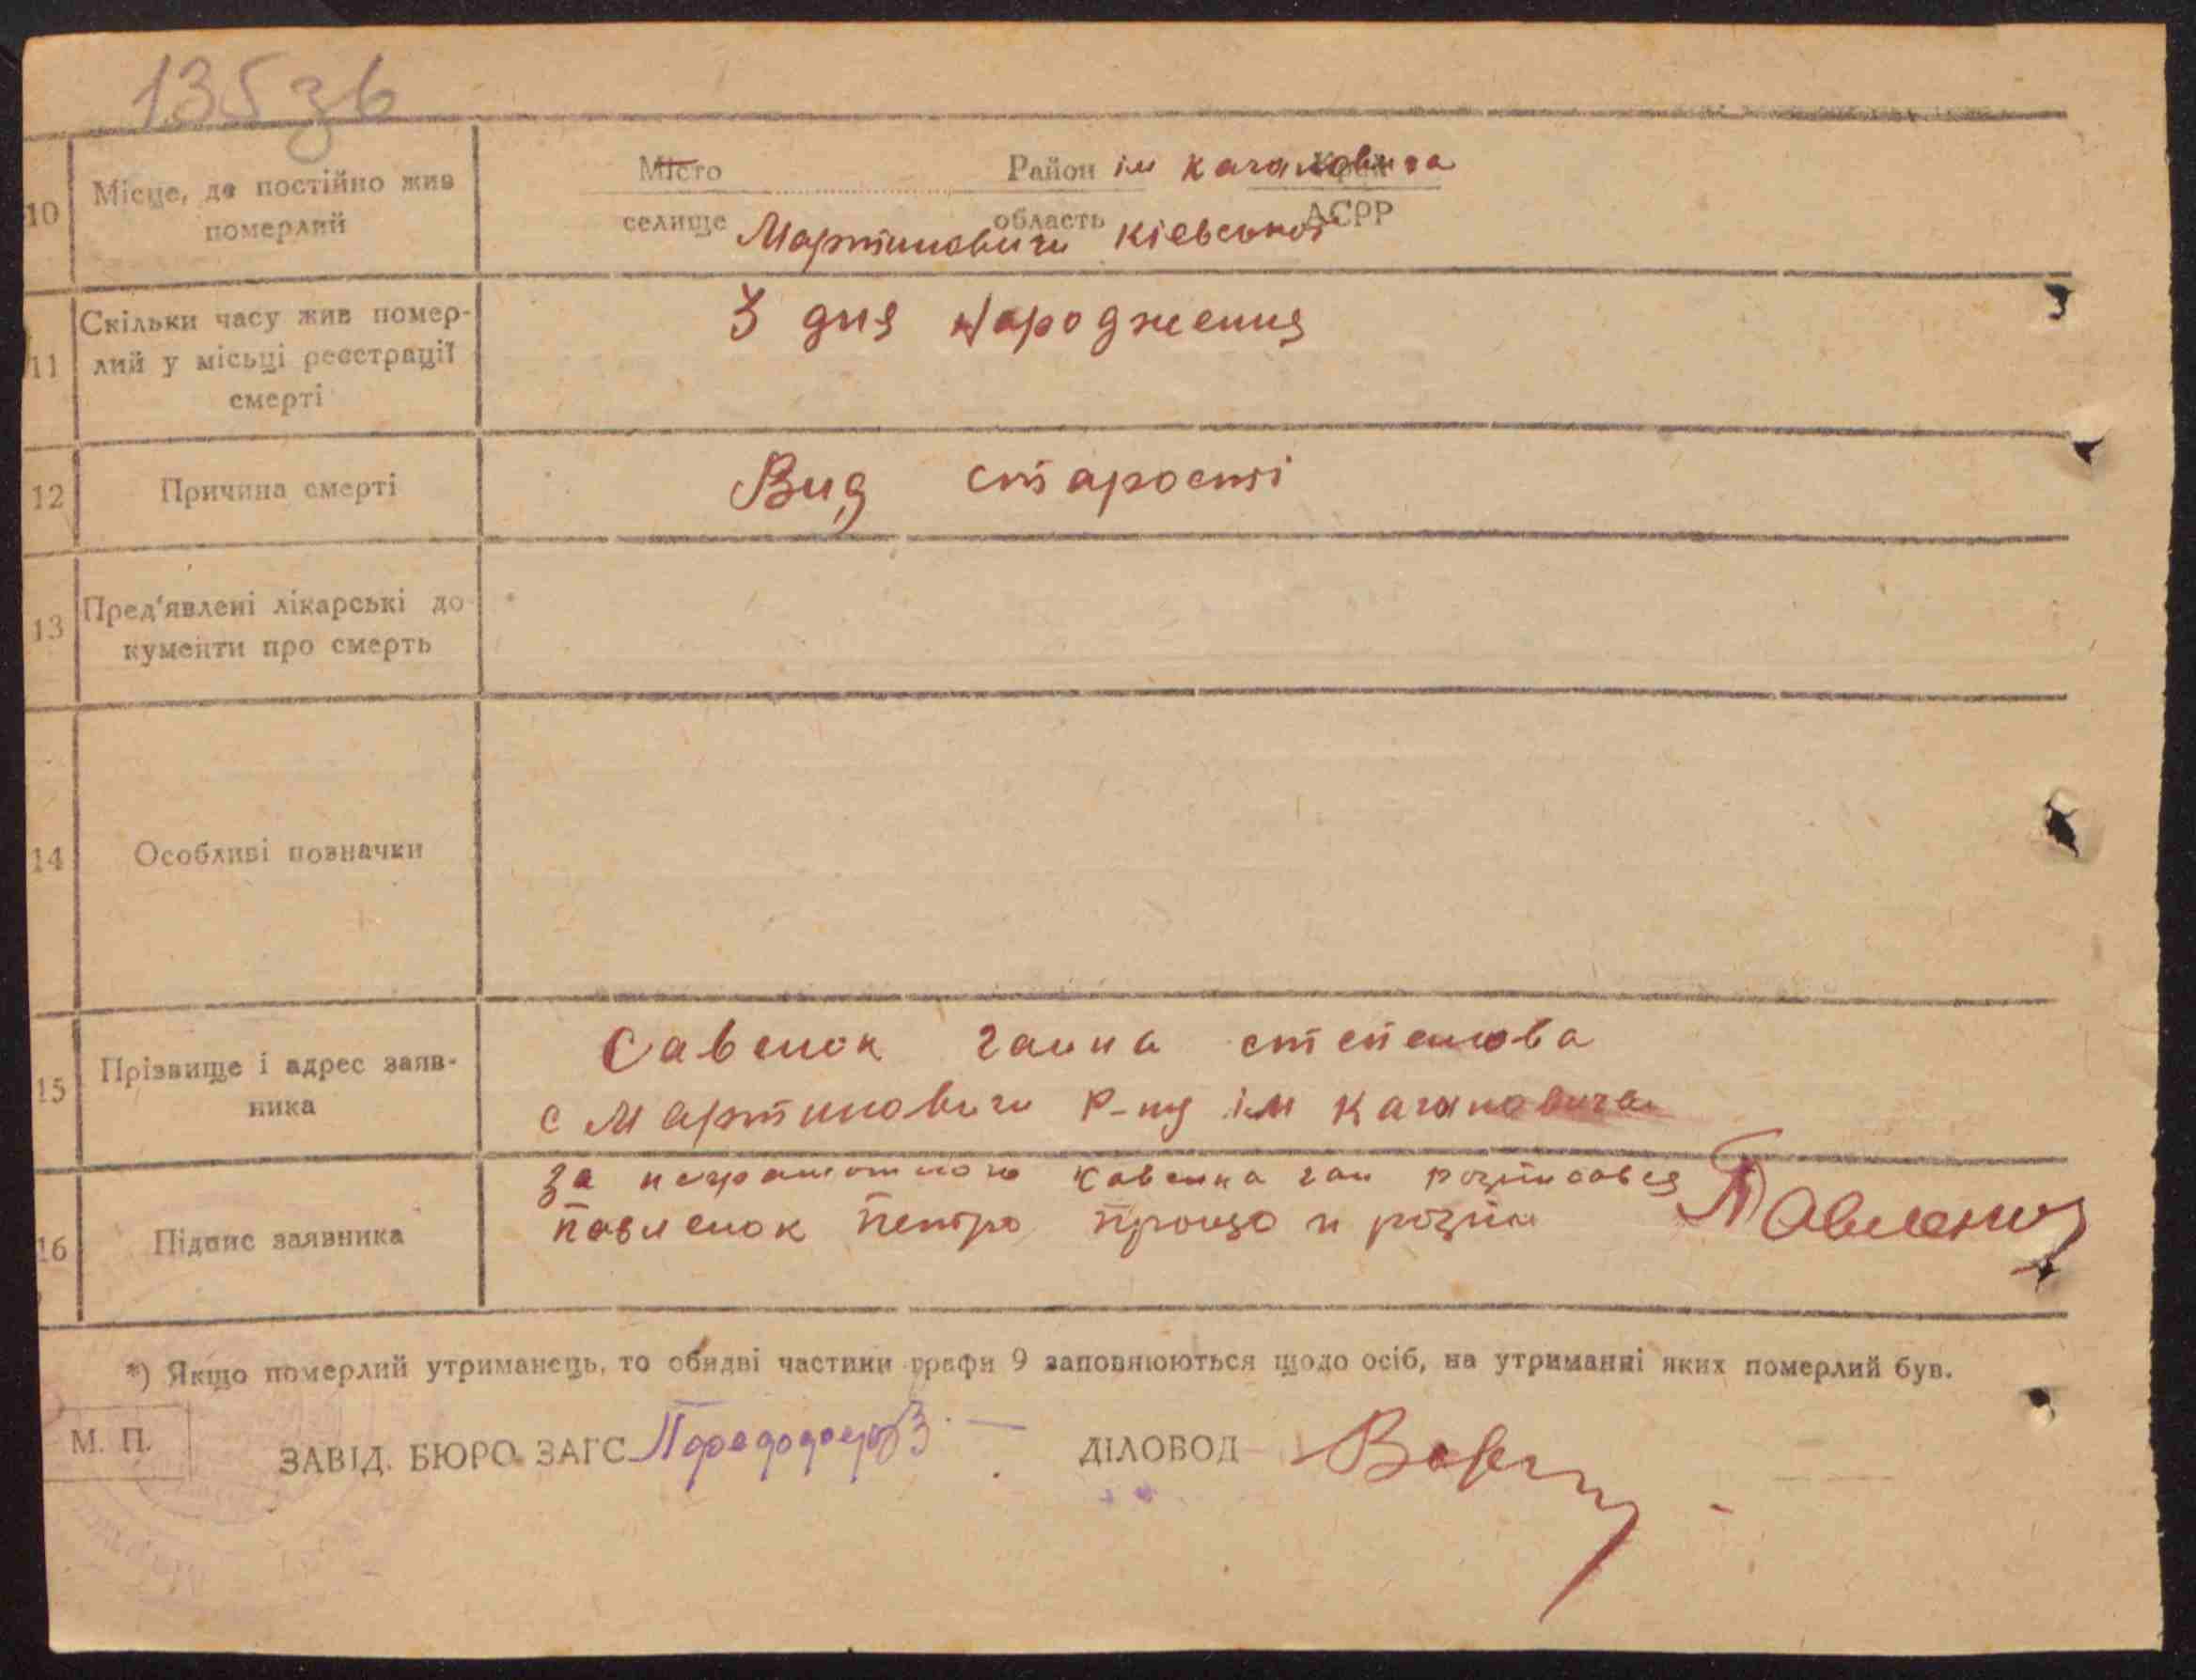 135 зв
10 Місце, де постійно жив померлий
Місто Район ім Кагановича Край
селище Мартиновичи область Кіевської АСРР
11 Скільки часу жив помер-
лий у місьці реєстрації
смерті
З дня народження
12 Причина смерті
Вид старости
13 Пред'явлені лікарські до
кументи про смерть
14 Особливі позначки
15 Прізвище і адрес заяв-
ника
Савенок ганна степенова
с Мартиновичи р-ну ім Кагановича
16 Підпис заявника
за неграмотного Савенка ган розписавея
павленок петро
*) Якщо померлий утриманець, то обидві частини графи 9 заповнюються щодо осіб, на утриманні яких померлий був.
М. П.
ЗАВІД. БЮРО ЗАГС
ДІЛОВОД